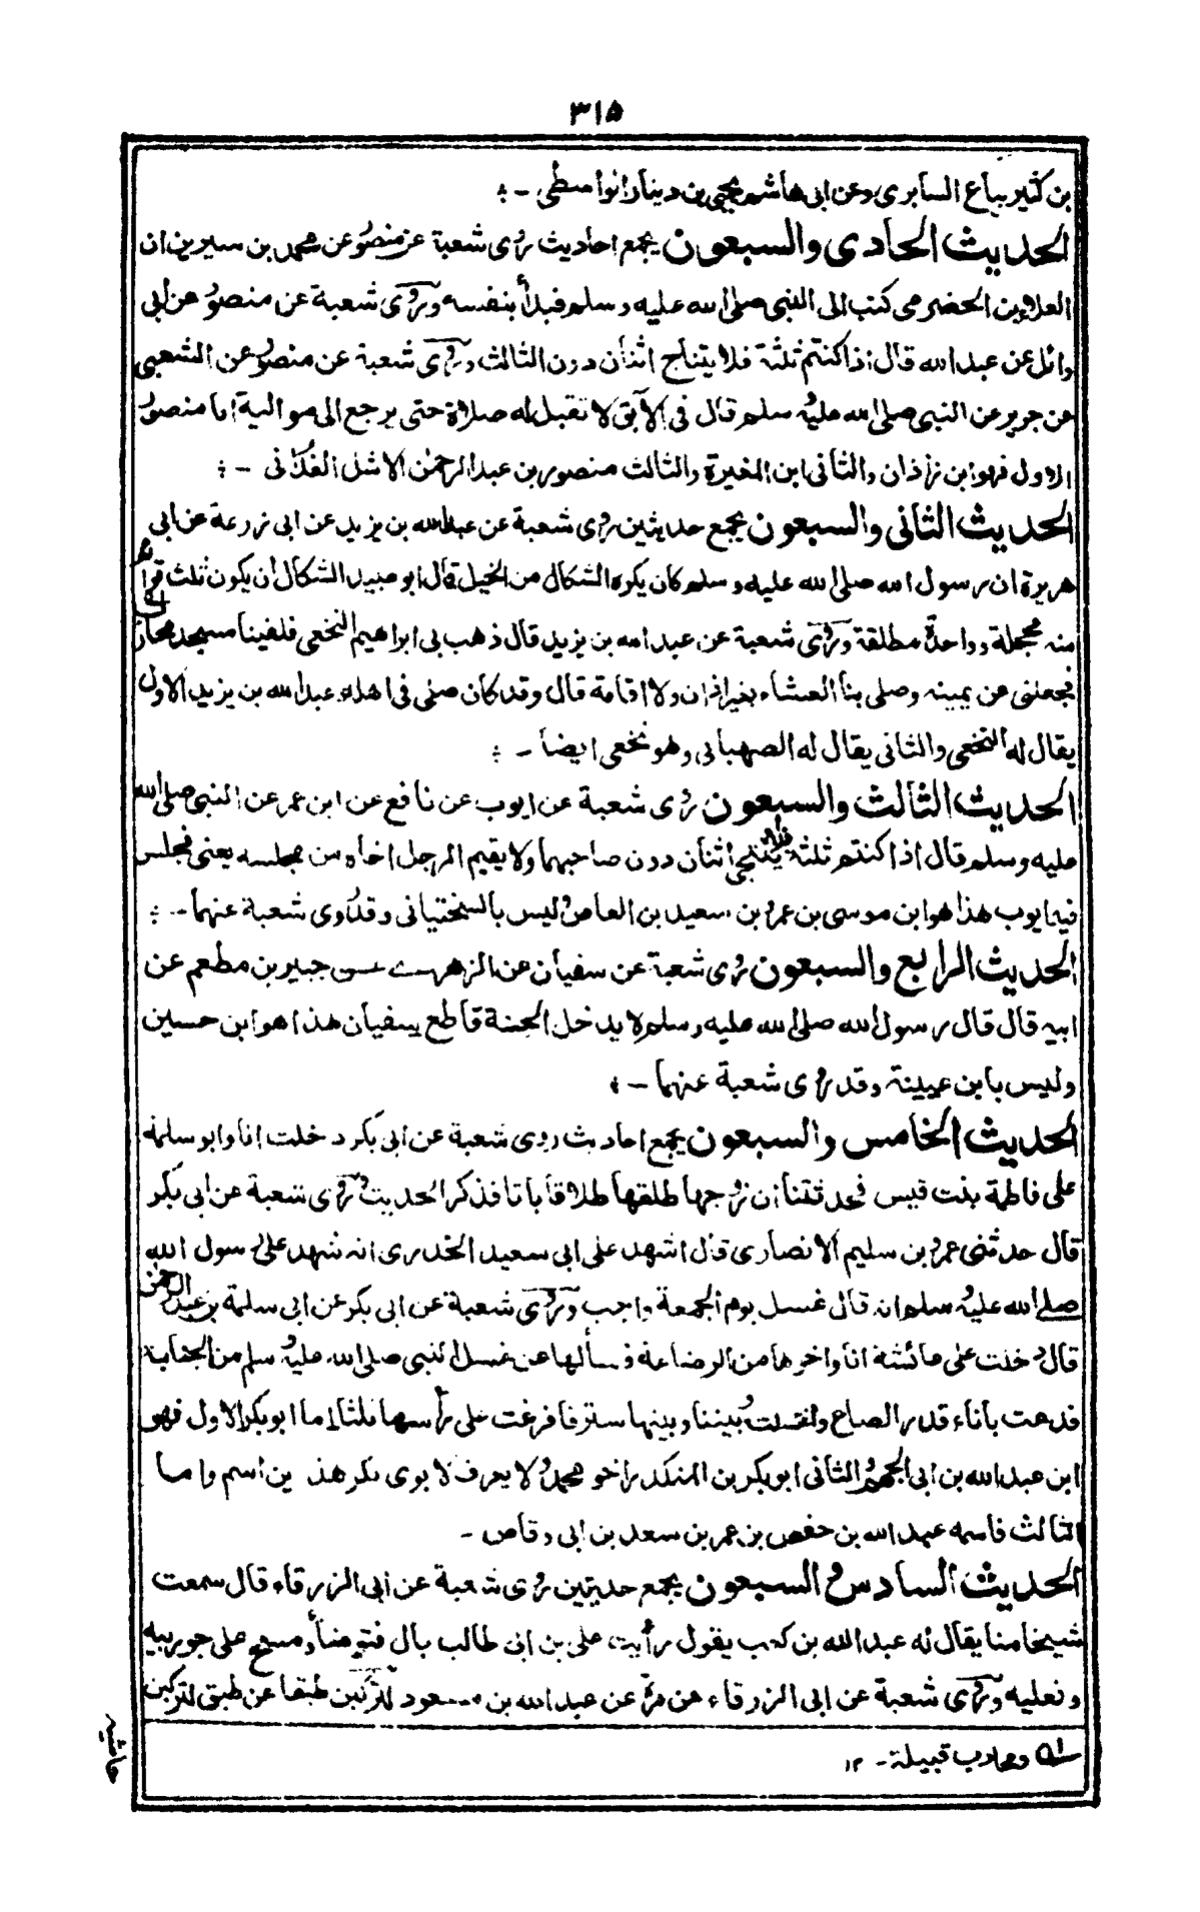 ٣١٥
بن كثير بياع السابرى وعن ابى هاشم يحيى بن دينار الواسطى -
الحديث الحادى والسبعون يجمع احاديث روى شعبة عن منصور عن محمد بن سيرين ان
العلاء بن الحضرمى كتب الى النبى صلى الله عليه وسلم فبدأ بنفسه وروى شعبة عن منصور عن ابى
وائل عن عبد الله قال اذا كنتم ثلثة فلا يتناج اثنان دون الثالث وروى شعبة عن منصور عن الشعبى
عن جرير عن النبى صلى الله عليه وسلم قال فى الآبق لا تقبل له صلاة حتى يرجع الى مواليه اما منصور
الاول فهو ابن زاذان والثانى ابن المغيرة والثالث منصور بن عبد الرحمٰن الاشل الغدانى -
الحديث الثانى والسبعون يجمع حديثين روى شعبة عن عبد الله بن يزيد عن ابى زرعة عن ابى
هريرة ان رسول الله صلى الله عليه وسلم كان يكره الشكال من الخيل قال ابو عبيد الشكال ان يكون ثلث قوائم
منه محجلة وواحدة مطلقة وروى شعبة عن عبد الله بن يزيد قال ذهب بى ابراهيم النخعى فلقينا مسجد محارب
فجعلنى عن يمينه وصلى بنا العشاء بغير اذان ولا اقامة قال وقد كان صلى فى اهله عبد الله بن يزيد الاول
يقال له النخعى والثانى يقال له الصهبانى وهو نخعى ايضا -
الحديث الثالث والسبعون روى شعبة عن ايوب عن نافع عن ابن عمر عن النبى صلى الله
عليه وسلم قال اذا كنتم ثلثة فلا يتنجى اثنان دون صاحبهما ولا يقيم الرجل اخاه من مجلسه يعنى فيجلس
فيه ايوب هذا هو ابن موسى بن عمرو بن سعيد بن العاص وليس بالسختيانى وقد روى شعبة عنهما -
الحديث الرابع والسبعون روى شعبة عن سفيان عن الزهرى عن جبير بن مطعم عن
ابيه قال قال رسول الله صلى الله عليه وسلم لا يدخل الجنة قاطع سفيان هذا هو ابن حسين
وليس بابن عيينة وقد روى شعبة عنهما -
الحديث الخامس والسبعون يجمع احاديث روى شعبة عن ابى بكر دخلت انا وابو سلمة
على فاطمة بنت قيس فحدثتنا ان زوجها طلقها طلاقا باتا فذكر الحديث وروى شعبة عن ابى بكر
قال حدثنى عمرو بن سليم الانصارى قال اشهد على ابى سعيد الخدرى انه شهد على رسول الله
صلى الله عليه وسلم انه قال غسل يوم الجمعة واجب وروى شعبة عن ابى بكر عن ابى سلمة بن عبد الرحمٰن
قال دخلت على عائشة انا واخوها من الرضاعة فسألها عن غسل النبى صلى الله عليه وسلم من الجنابة
فدعت باناء قدر الصاع واغتسلت وبيننا وبينها ستر فافرغت على رأسها ثلثا اما ابو بكر الاول فهو
ابن عبد الله بن ابى الجهم والثانى ابو بكر بن المنكدر اخو محمد ولا يعرف لابوى بكر هذين اسم واما
الثالث فاسمه عبد الله بن حفص بن عمر بن سعد بن ابى وقاص -
الحديث السادس والسبعون يجمع حديثين روى شعبة عن ابى الزرقاء قال سمعت
شيخا منا يقال له عبد الله بن كعب يقول رأيت على بن ابى طالب بال فتوضأ ومسح على جوربيه
ونعليه وروى شعبة عن ابى الزرقاء عن مرة عن عبد الله بن مسعود لتركبن طبقا عن طبق لتركبن
ﻟﻪ ومحارب قبيلة - ١٢
حاشيه